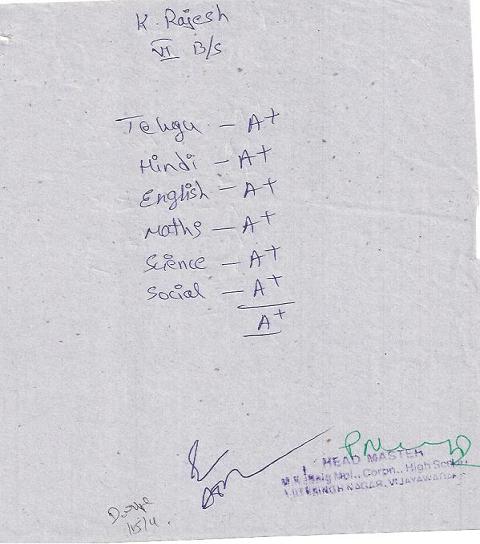 K. Rajesh
VI B/s
Telugu - A+
Hindi - A+
English - A+
Maths - A+
Science - A+
Social - A+
A+
HEAD MASTER
Mpl., Corpn., High School
SINGH NAGAR, VIJAYAWADA